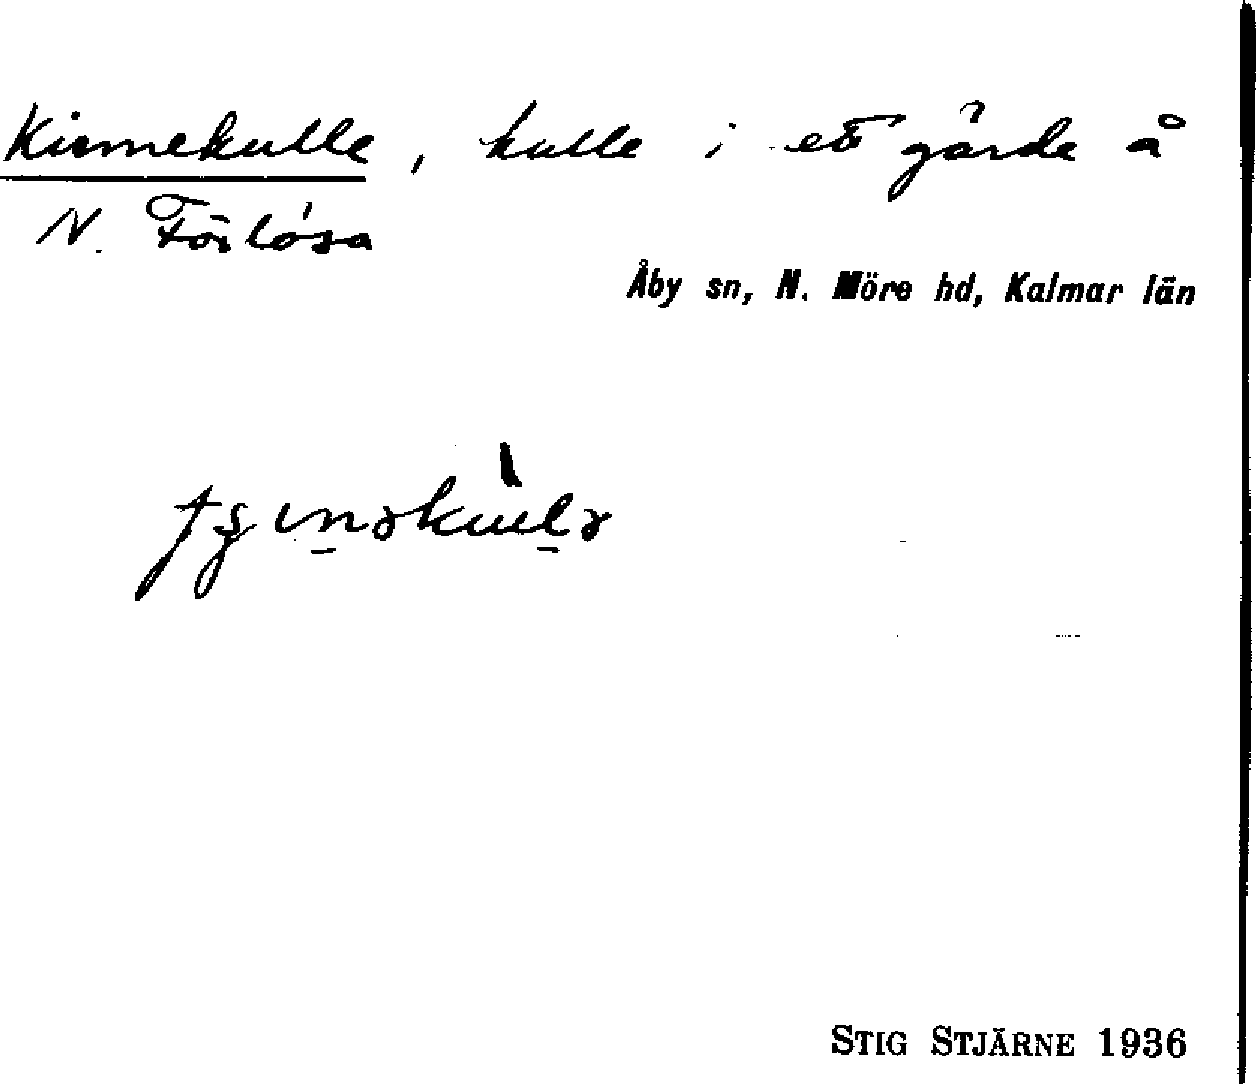 Kinnekulle, kulle i ett gärde å
N. Förlösa
Åby sn, N. Möre hd, Kalmar län
STIG STJÄRNE 1936